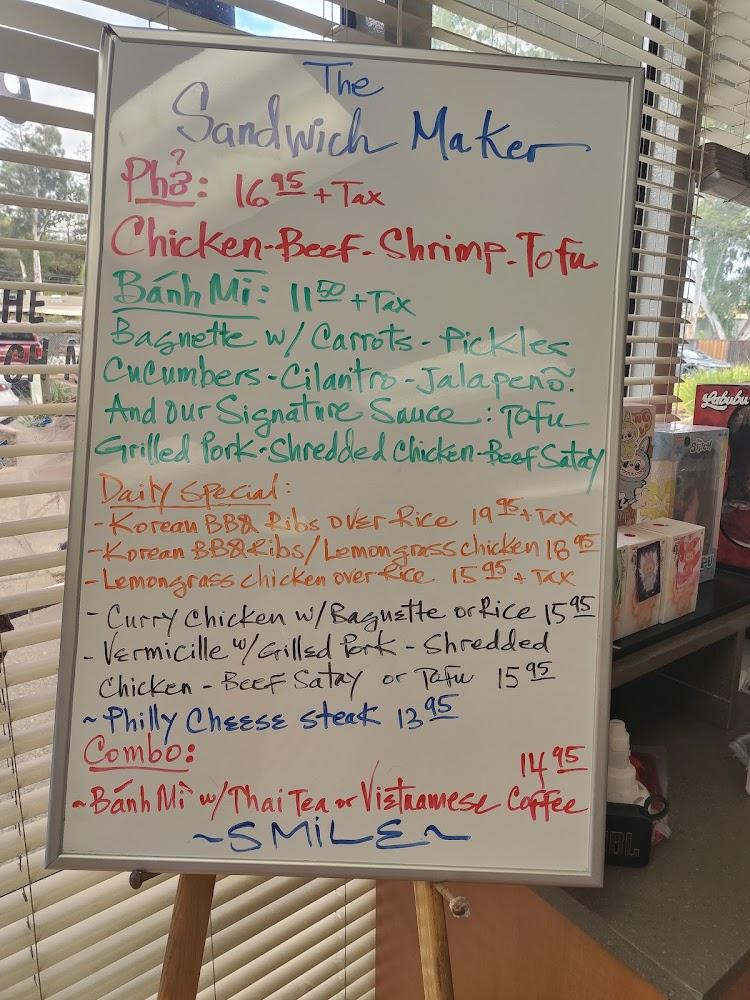 The
Sandwich Maker
Phở: 16 95 + Tax
Chicken-Beef-Shrimp-Tofu
Bánh Mī: 11 50 + Tax
Baguette w/ Carrots - Pickles
Cucumbers - Cilantro - Jalapenõ.
And our Signature Sauce: Tofu
Grilled Pork-Shredded Chicken-Beef Satay
Daily Special:
- Korean BBQ Ribs over Rice 19 95 + Tax
- Korean BBQ Ribs/Lemongrass chicken 18 95
- Lemongrass chicken over Rice 15 95 + Tax
- Curry Chicken w/Baguette or Rice 15 95
- Vermicille w/Grilled Pork - Shredded
Chicken - Beef Satay or Tofu 15 95
~ Philly Cheese steak 13 95
Combo: 14 95
~ Bánh Mì w/Thai Tea or Vietnamese Coffee
~SMiLE~
HE
Labubu
JBL